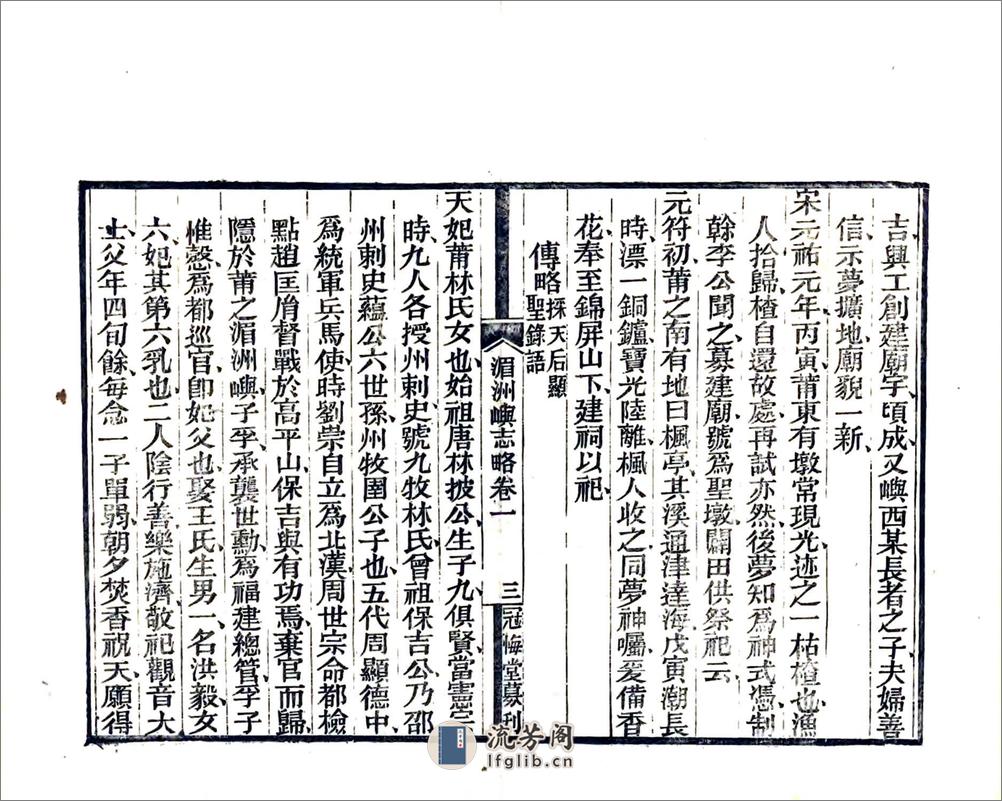 吉興工創建廟宇頃成又嶼西某長者之子夫婦善
信示夢擴地廟貌一新
宋元祐元年丙寅莆東有墩常現光迹之一枯楂也漁
人拾歸楂自還故處再試亦然後夢知爲神式憑制
幹李公聞之募建廟號爲聖墩闢田供祭祀云
元符初莆之南有地曰楓亭其溪通津達海戊寅潮長
時漂一銅鑪寶光陸離楓人收之同夢神囑爰備香
花奉至錦屏山下建祠以祀
傳略採天后顯聖錄語
湄洲嶼志略卷一 三 冠悔堂募刊
天妃莆林氏女也始祖唐林披公生子九俱賢當憲宗
時九人各授州刺史號九牧林氏曾祖保吉公乃邵
州刺史蘊公六世孫州牧圉公子也五代周顯德中
爲統軍兵馬使時劉崇自立爲北漢周世宗命都檢
點趙匡胤督戰於高平山保吉與有功焉棄官而歸
隱於莆之湄洲嶼子孚承襲世勳爲福建總管孚子
惟慤爲都巡官卽妃父也娶王氏生男一名洪毅女
六妃其第六乳也二人陰行善樂施濟敬祀觀音大
士父年四旬餘每念一子單弱朝夕焚香祝天願得
流芳阁
lfglib.cn